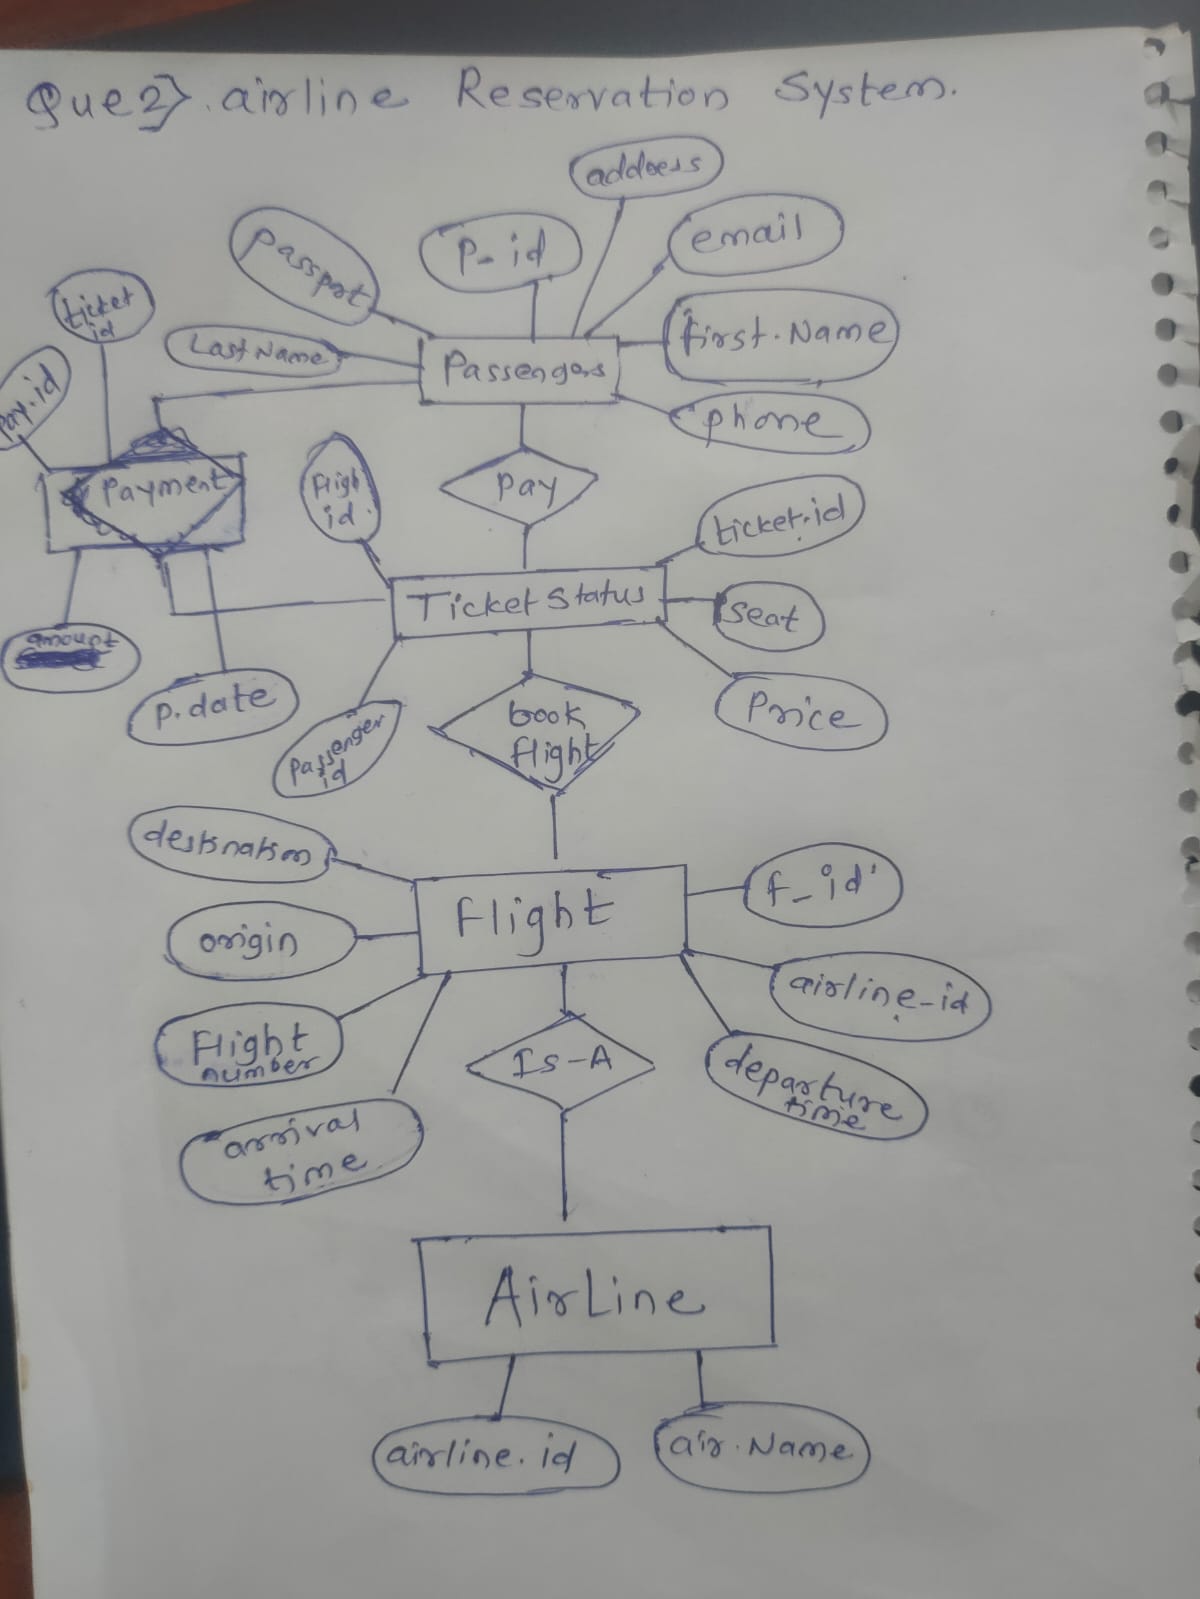 Que2}. airline Reservation System.
address
email
P-id
Passport
ticket
id
first.Name
Last Name
Passengers
pay.id
phone
Payment
pay
Fligh
id.
ticket.id
Ticket Status
seat
amount
p.date
Price
book
flight
passenger
id
destination
f_id
Flight
origin
airline-id
Flight
number
Is-A
departure
time
arrival
time
AirLine
airline.id
air.Name